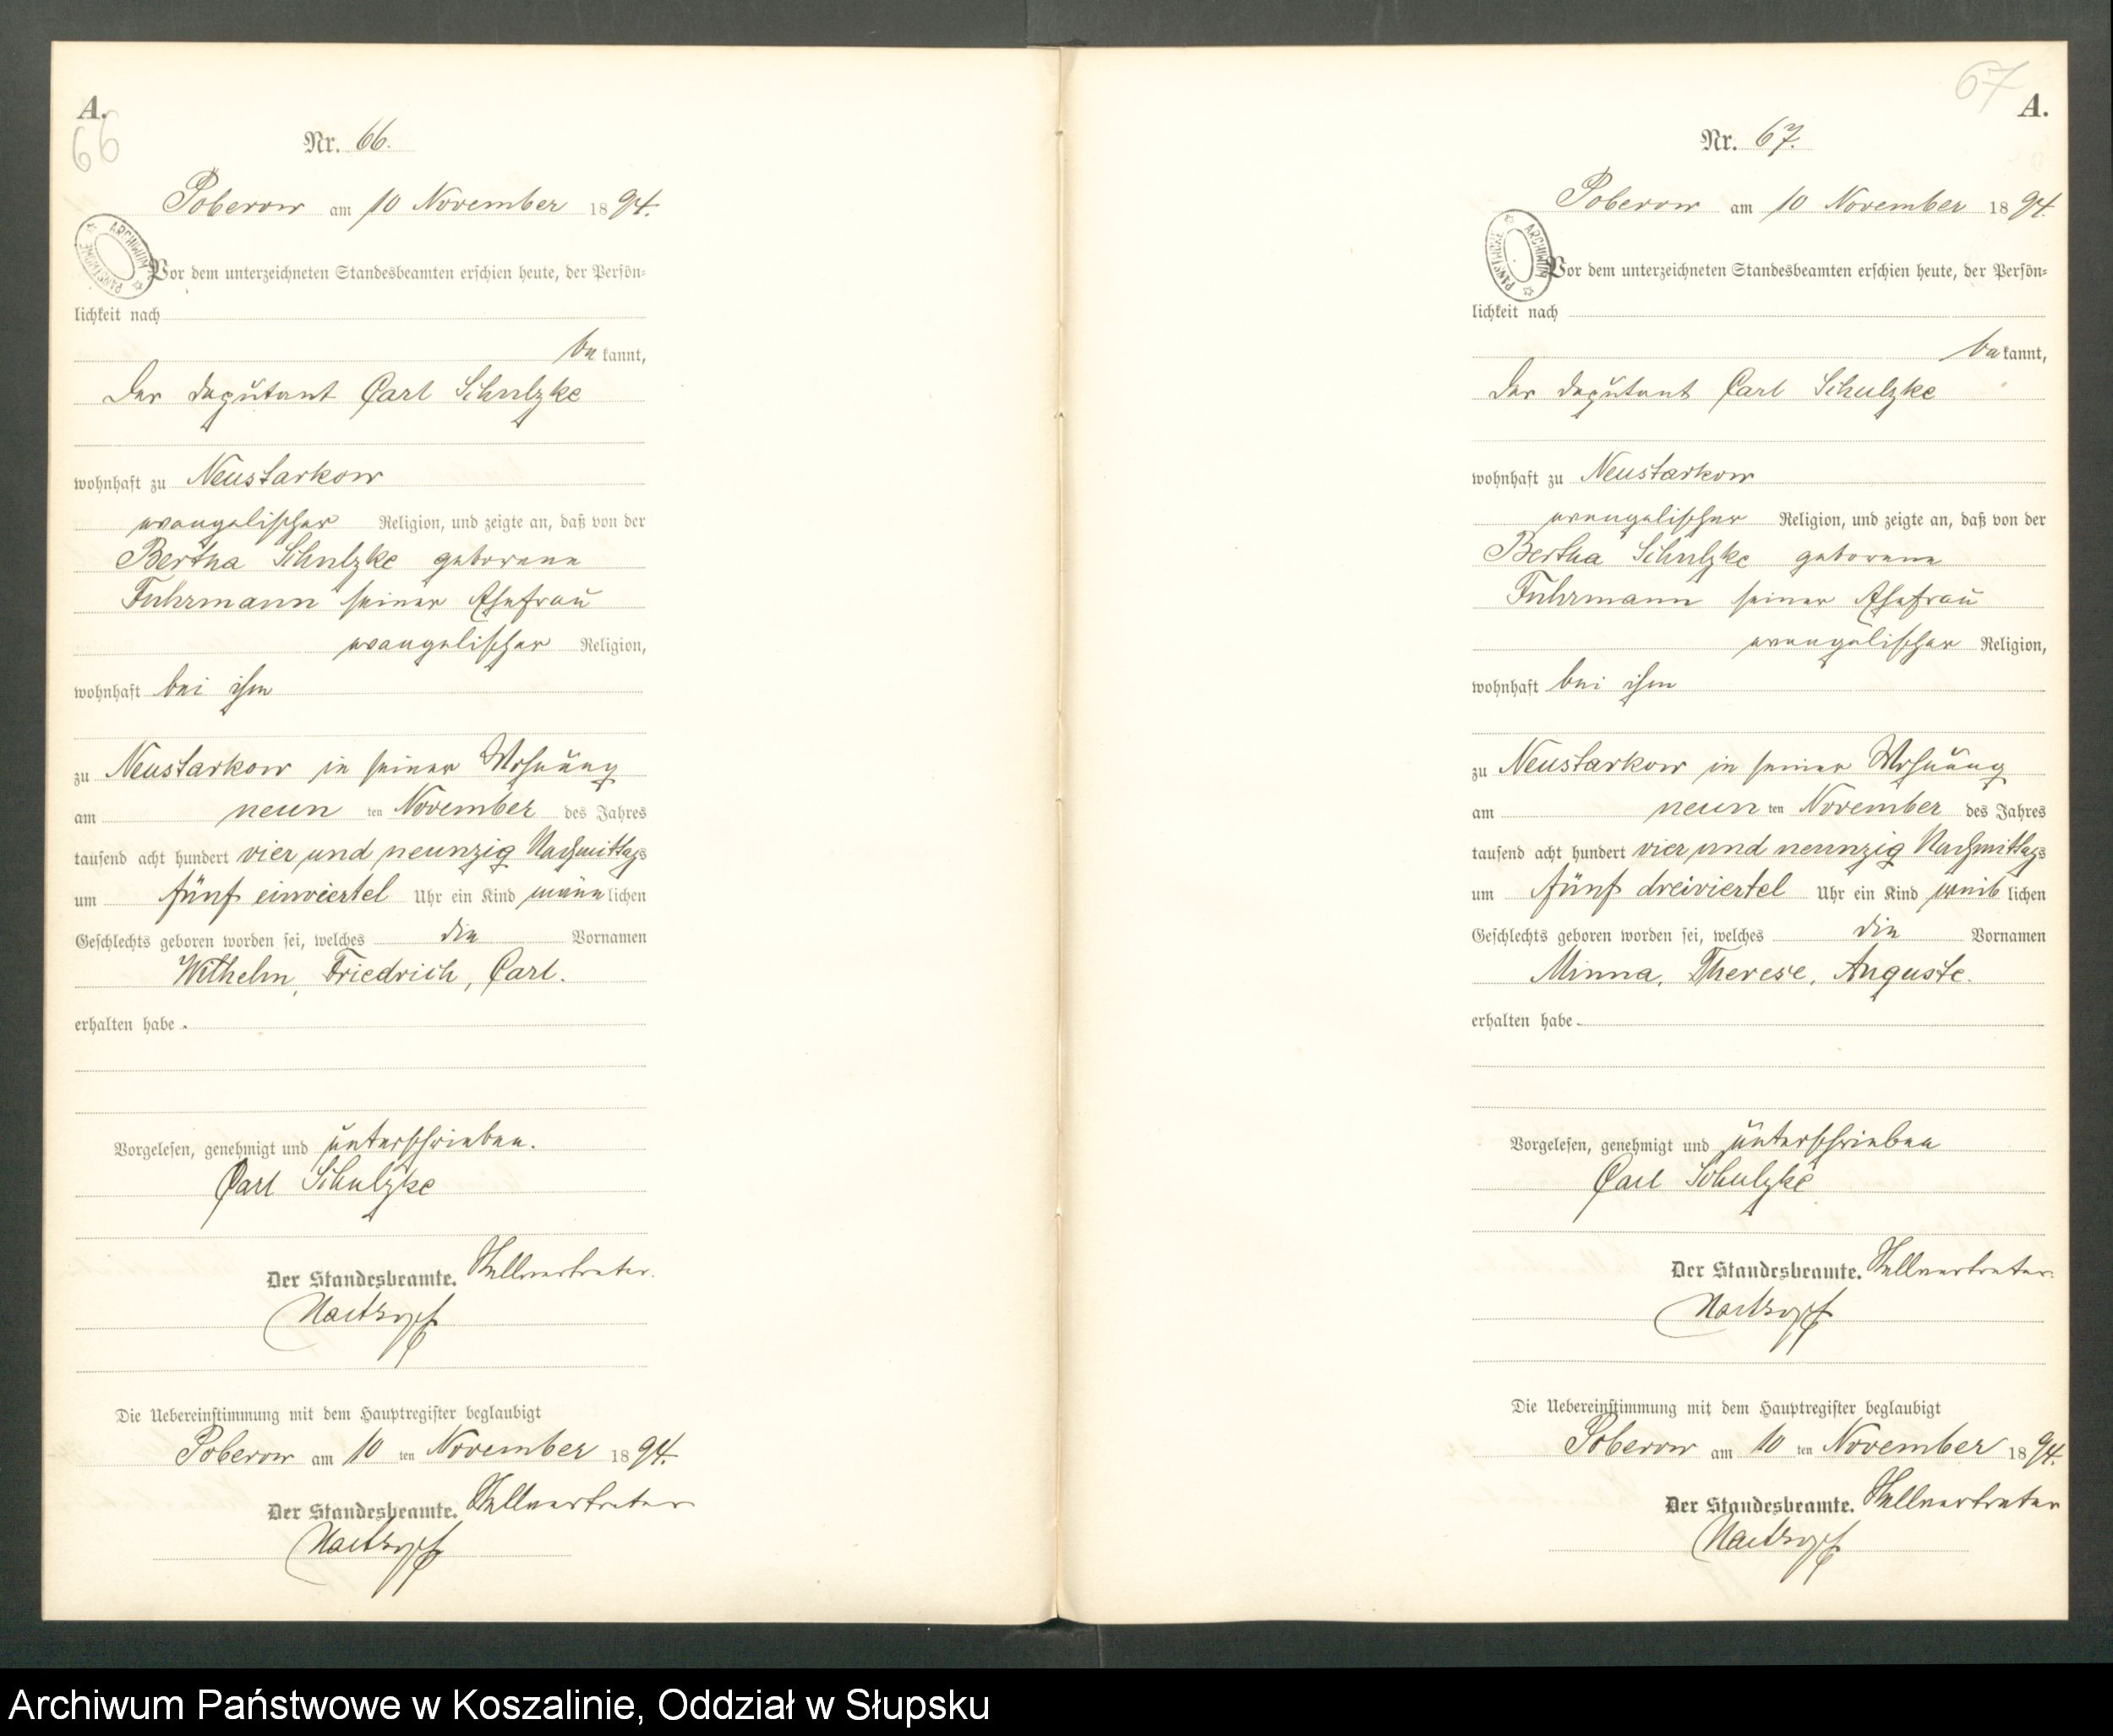 A.
66
Nr. 66.
Poberow am 10 November 1894.
Vor dem unterzeichneten Standesbeamten erschien heute, der Persön-
lichkeit nach
bekannt,
der Deputant Carl Schulzke
wohnhaft zu Neustarkow
evangelischer Religion, und zeigte an, daß von der
Bertha Schulzke geborene
Fuhrmann seiner Ehefrau
evangelischer Religion,
wohnhaft bei ihm
zu Neustarkow in seiner Wohnung
am neunten November des Jahres
tausend acht hundert vier und neunzig Nachmittags
um fünf einviertel Uhr ein Kind männlichen
Geschlechts geboren worden sei, welches die Vornamen
Wilhelm, Friedrich, Carl.
erhalten habe.
Vorgelesen, genehmigt und unterschrieben.
Carl Schulzke
Der Standesbeamte. Stellvertreter.
Die Uebereinstimmung mit dem Hauptregister beglaubigt
Poberow am 10ten November 1894.
Der Standesbeamte. Stellvertreter
ARCHIWUM PAŃSTWOWE
67
A.
Nr. 67.
Poberow am 10 November 1894.
Vor dem unterzeichneten Standesbeamten erschien heute, der Persön-
lichkeit nach
bekannt,
der Deputant Carl Schulzke
wohnhaft zu Neustarkow
evangelischer Religion, und zeigte an, daß von der
Bertha Schulzke geborene
Fuhrmann seiner Ehefrau
evangelischer Religion,
wohnhaft bei ihm
zu Neustarkow in seiner Wohnung
am neunten November des Jahres
tausend acht hundert vier und neunzig Nachmittags
um fünf dreiviertel Uhr ein Kind weiblichen
Geschlechts geboren worden sei, welches die Vornamen
Minna, Therese, Auguste.
erhalten habe.
Vorgelesen, genehmigt und unterschrieben
Carl Schulzke
Der Standesbeamte. Stellvertreter.
Die Uebereinstimmung mit dem Hauptregister beglaubigt
Poberow am 10ten November 1894.
Der Standesbeamte. Stellvertreter
ARCHIWUM PAŃSTWOWE
Archiwum Państwowe w Koszalinie, Oddział w Słupsku